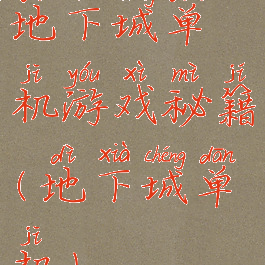 地下城单
jī yóu xì mì jí
机游戏秘籍
dì xià chéng dān
(地下城单
jī
机)